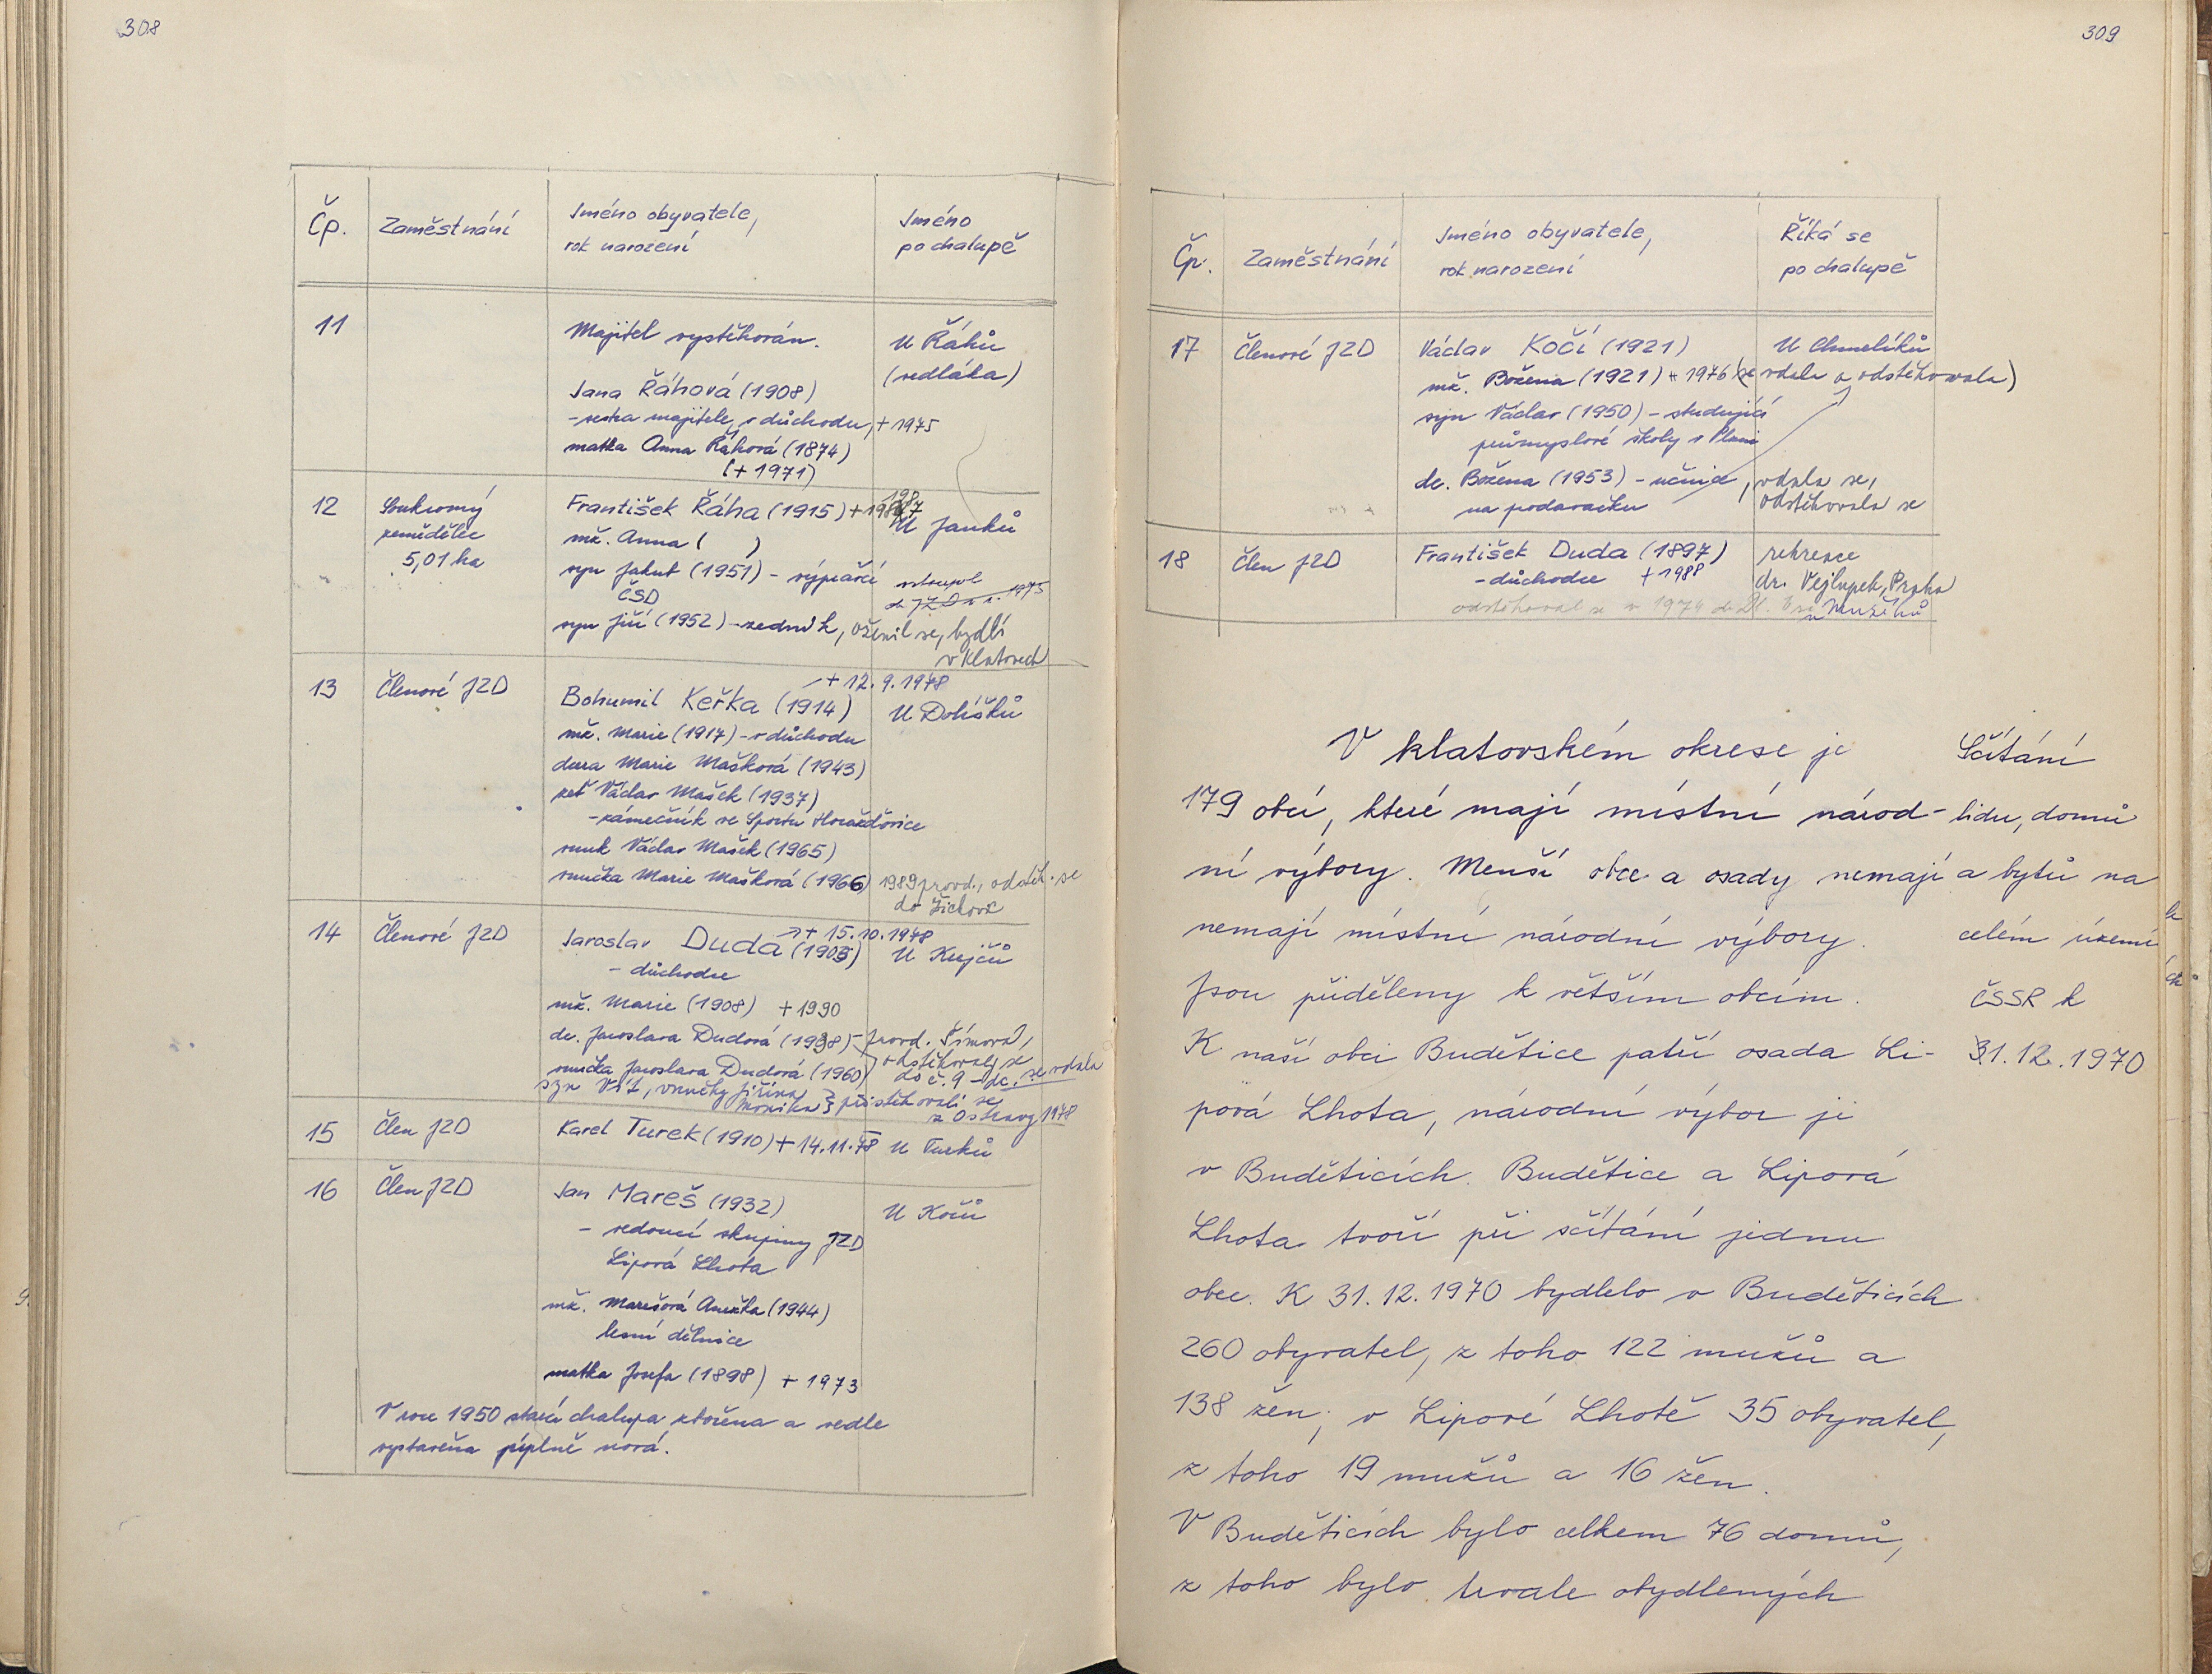 308
Čp.
Zaměstnání
Jméno obyvatele,
rok narození
Jméno
po chalupě
11
Majitel vystěhován.
U Řáhů
(sedláka)
Jana Řáhová (1908)
- sestra majitele, v důchodu, + 1975
matka Anna Řáhová (1874)
(+ 1971)
12
Soukromý
zemědělec
5,01 ha
František Řáha (1915) + 1987
U Janků
mž. Anna ( )
syn Jakub (1951) - výpravčí
ČSD
vstoupil
do JZD v r. 1975
syn Jiří (1952) - zedník, oženil se, bydlí
v Klatovech
13
Členové JZD
+ 12. 9. 1978
Bohumil Keřka (1914)
U Dolíšků
mž. Marie (1917) - v důchodu
dcera Marie Mašková (1943)
zeť Václav Mašek (1937)
- zámečník ve Sportu Horažďovice
vnuk Václav Mašek (1965)
vnučka Marie Mašková (1966) 1989 provd., odstěh. se
do Žichovic
14
Členové JZD
+ 15. 10. 1978
Jaroslav Duda (1905)
U Krejčů
- důchodce
mž. Marie (1908) + 1990
dc. Jaroslava Dudová (1938) - provd. Šímová,
odstěhovaly se
vnučka Jaroslava Dudová (1960) do č. 9 - dc. se vdala
syn Vít, vnučky Jiřina
Monika } přistěhovali se
z Ostravy 1978
15
Člen JZD
Karel Turek (1910) + 14. 11. 78
U Turků
16
Člen JZD
Jan Mareš (1932)
U Kočů
- vedoucí skupiny JZD
Lipová Lhota
mž. Marešová Anežka (1944)
lesní dělnice
matka Josefa (1898) + 1973
V roce 1950 stará chalupa zbořena a vedle
vystavěna úplně nová.
309
Čp.
Zaměstnání
Jméno obyvatele,
rok narození
Říká se
po chalupě
17
Členové JZD
Václav Kočí (1921)
U Chmelíků
mž. Božena (1921) + 1976 (se vdala a odstěhovala)
syn Václav (1950) - studující
průmyslové školy v Plzni
dc. Božena (1953) - učnice, vdala se,
na prodavačku
odstěhovala se
18
Člen JZD
František Duda (1897)
- důchodce + 1988
rekreace
dr. Vejlupek, Praha
odstěhoval se v 1974 do Dl. Vsi
V klatovském okrese je
179 obcí, které mají místní národ-
ní výbory. Menší obce a osady nemají
nemají místní národní výbory.
Jsou přiděleny k větším obcím.
K naší obci Budětice patří osada Li-
pová Lhota, národní výbor je
v Budětících. Budětice a Lipová
Lhota tvoří při sčítání jednu
obec. K 31. 12. 1970 bydlelo v Budětících
260 obyvatel, z toho 122 mužů a
138 žen; v Lipové Lhotě 35 obyvatel,
z toho 19 mužů a 16 žen.
V Budětících bylo celkem 76 domů,
z toho bylo trvale obydlených
Sčítání
lidu, domů
a bytů na
celém území
ČSSR k
31. 12. 1970